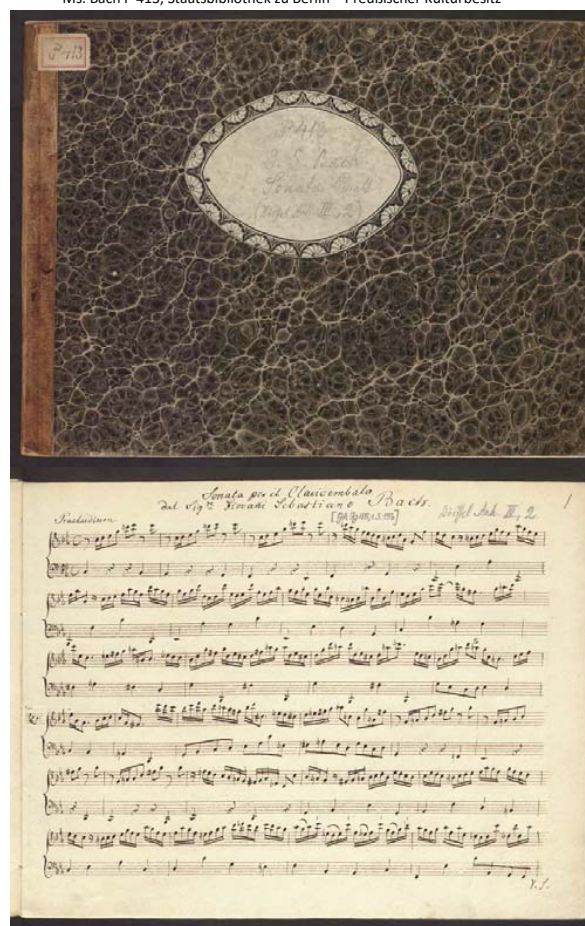 Ms. Bach P 413, Staatsbibliothek zu Berlin – Preußischer Kulturbesitz
P 413
P 413
J. S. Bach
Sonata
III, 2)
Sonata per il Clavicembalo
dal Sigre Giovani Sebastiano Bach.
Praeludium
Anh. III, 2
1
V. S.